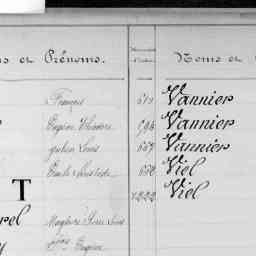 ms et Prénoms. Noms et
François 511 Vannier
Eugène Théodore 594 Vannier
Julien Louis 667 Vannier
Emile Aristide 650 Viel
1222 Viel
T
rel Magloire Pierre Louis
Eugène